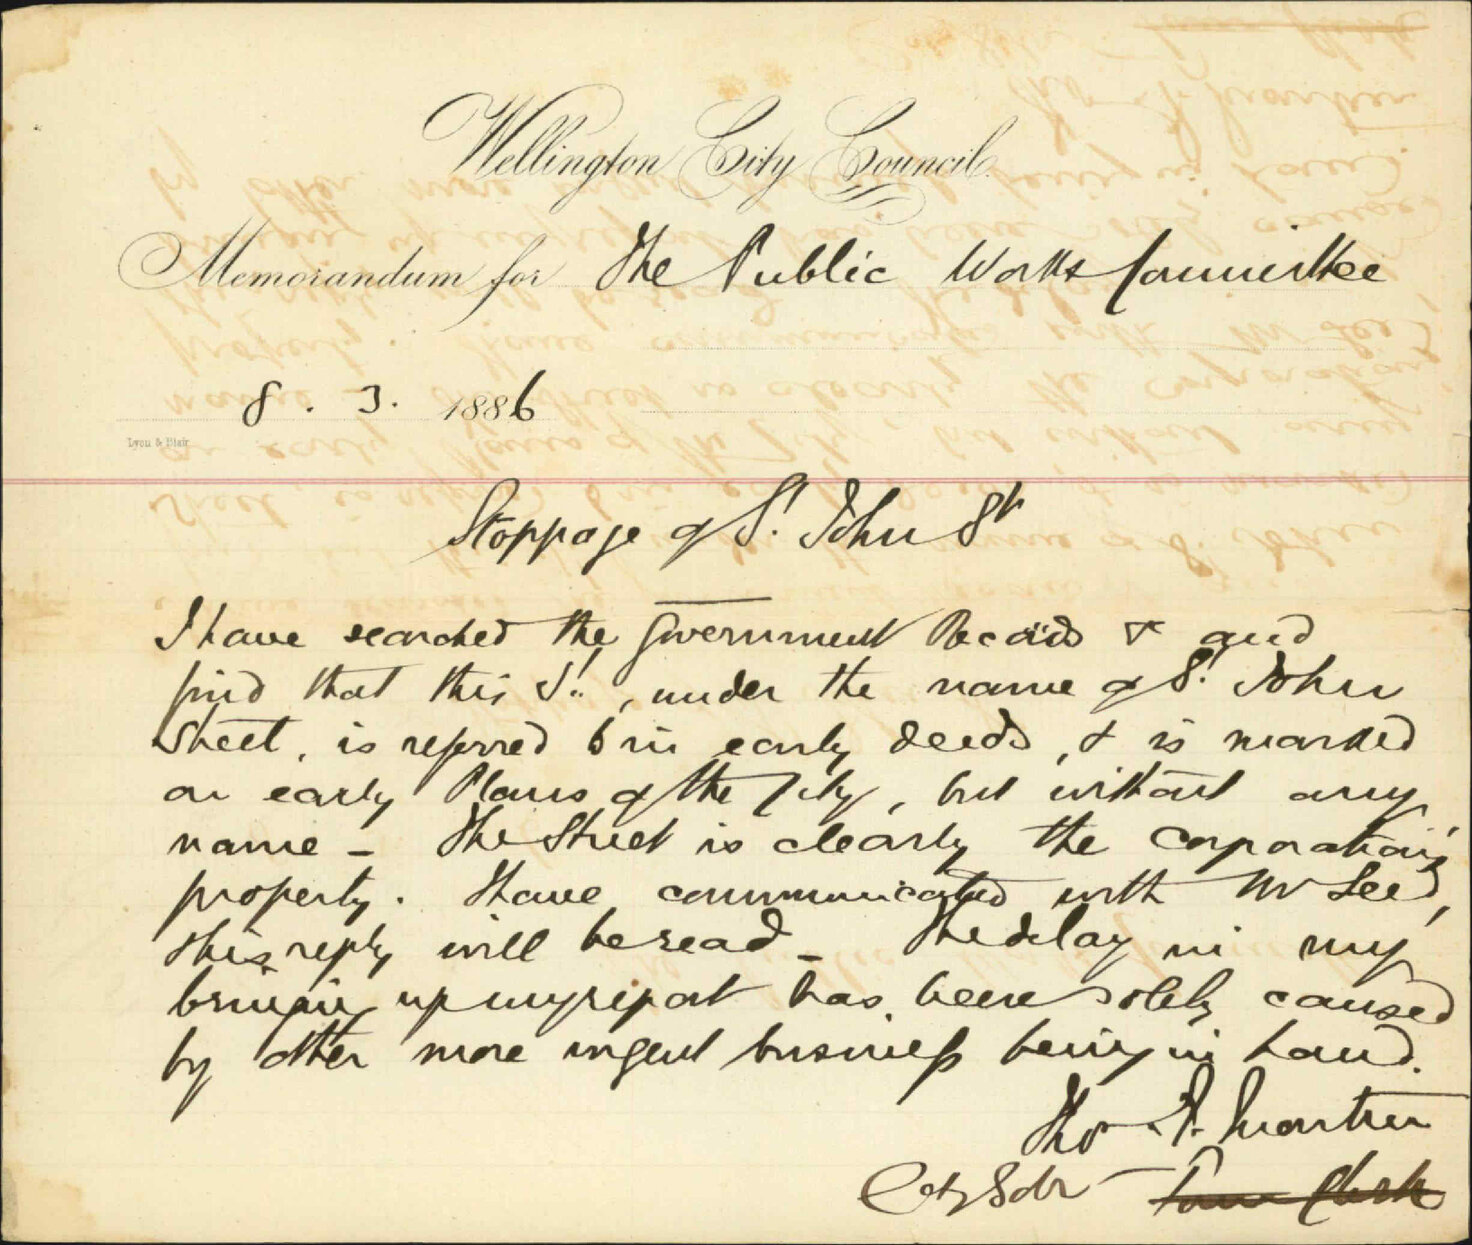 Wellington City Council.
Memorandum for The Public Works Committee
8 . 3. 1886
Lyon & Blair
Stoppage of St. John St
I have searched the Government Records & and
find that this St., under the name of St. John
Street, is referred to in early deeds, & is marked
on early Plans of the City, but without any
name - The Street is clearly the Corporation's
property. I have communicated with Mr Seed,
this reply will be read - The delay in my
bringing up my report has been solely caused
by other more urgent business being in hand.
Thos. F. Martin
City Solr Town Clerk